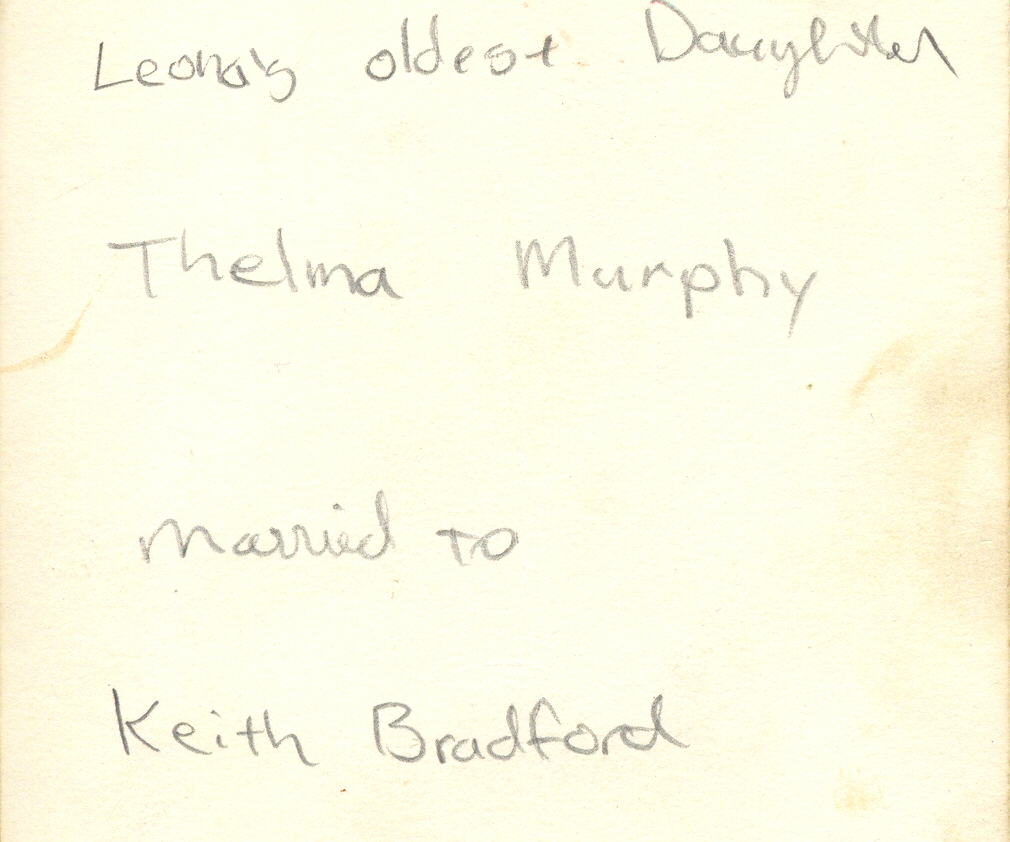 Leona's oldest Daughter
Thelma Murphy
married to
Keith Bradford